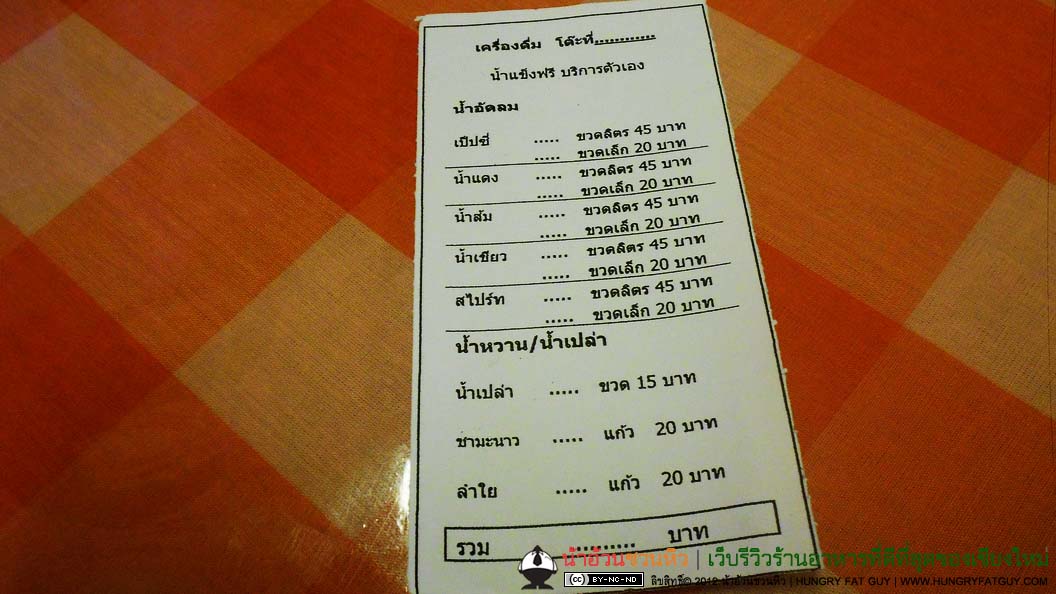 เครื่องดื่ม โต๊ะที่............
น้ำแข็งฟรี บริการตัวเอง
น้ำอัดลม
เป๊ปซี่ ..... ขวดลิตร 45 บาท
..... ขวดเล็ก 20 บาท
น้ำแดง ..... ขวดลิตร 45 บาท
..... ขวดเล็ก 20 บาท
น้ำส้ม ..... ขวดลิตร 45 บาท
..... ขวดเล็ก 20 บาท
น้ำเขียว ..... ขวดลิตร 45 บาท
..... ขวดเล็ก 20 บาท
สไปร์ท ..... ขวดลิตร 45 บาท
..... ขวดเล็ก 20 บาท
น้ำหวาน/น้ำเปล่า
น้ำเปล่า ..... ขวด 15 บาท
ชามะนาว ..... แก้ว 20 บาท
ลำใย ..... แก้ว 20 บาท
รวม ......... บาท
น้าอ้วนชวนหิว | เว็บรีวิวร้านอาหารที่ดีที่สุดของเชียงใหม่
cc BY-NC-ND ลิขสิทธิ์© 2012 น้าอ้วนชวนหิว | HUNGRY FAT GUY | WWW.HUNGRYFATGUY.COM